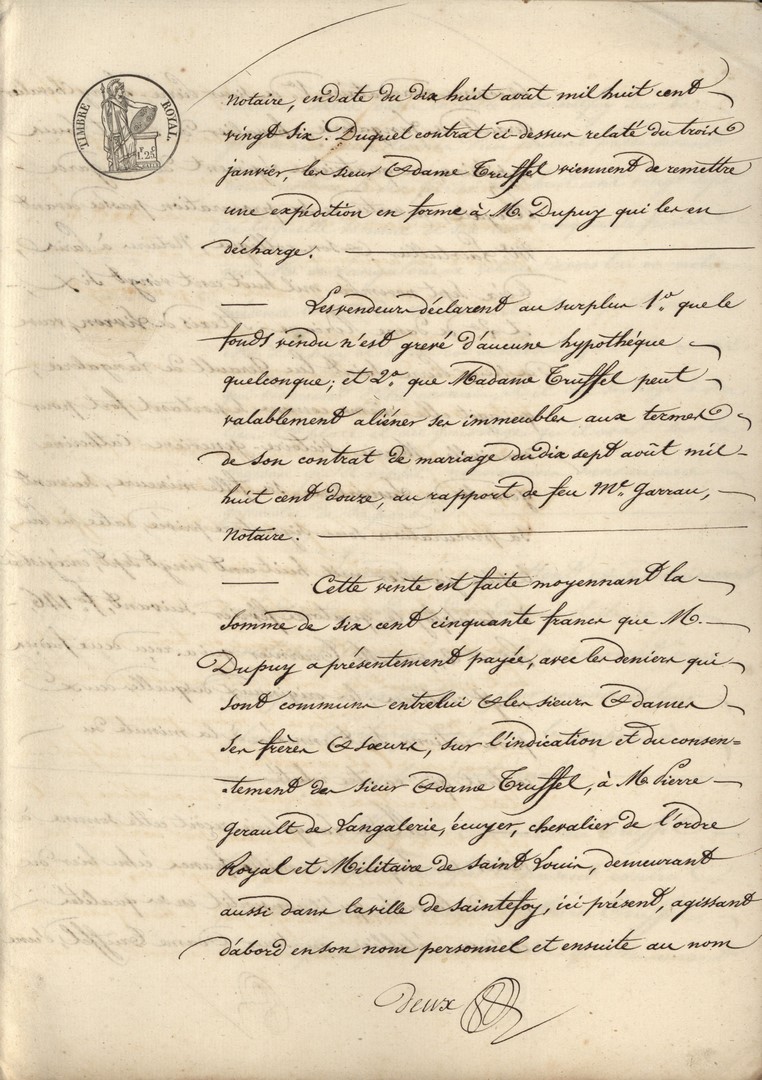 TIMBRE ROYAL.
1F. 25C
notaire, en date du dix huit août mil huit cent
vingt six. Duquel contrat ci-dessus relaté du trois
janvier, les sieur & Dame Truffel viennent de remettre
une expédition en forme à M. Dupuy qui les en
décharge.
Les vendeurs déclarent au surplus 1.o que le
fonds vendu n'est grevé d'aucune hypothèque
quelconque; et 2.o que Madame Truffel peut
valablement aliéner ses immeubles aux termes
de son contrat de mariage du dix sept août mil
huit cent douze, au rapport de feu Me. Garrau,
notaire.
Cette vente est faite moyennant la
somme de six cent cinquante francs que M.
Dupuy a présentement payée, avec les deniers qui
sont communs entre lui & les sieurs & Dames
ses frères & sœurs, sur l'indication et du consen=
=tement des sieur & Dame Truffel, à M. Pierre
Gerault de Langalerie, écuyer, chevalier de l'ordre
Royal et Militaire de Saint Louis, demeurant
aussi dans la ville de Saintefoy, ici présent, agissant
d'abord en son nom personnel et ensuite au nom
Deux